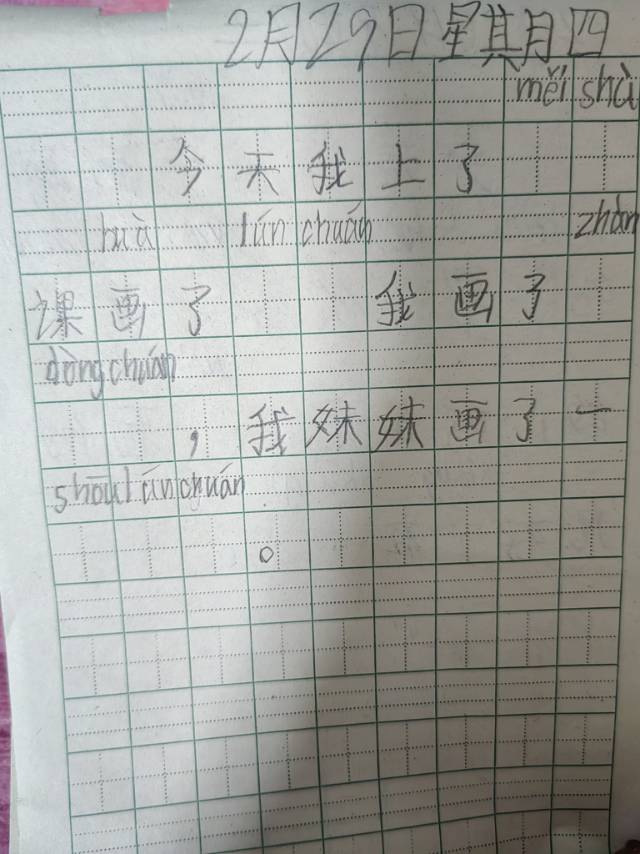 2月29日星其月四
měi shù
今天我上了
huà lún chuán zhàn
课画了 我画了
dòng chuán
,我妹妹画了一
shōu lún chuán
。